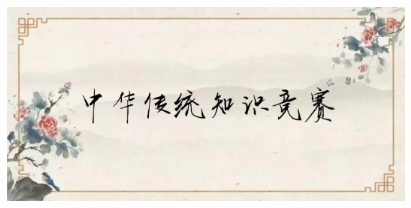 中华传统知识竞赛